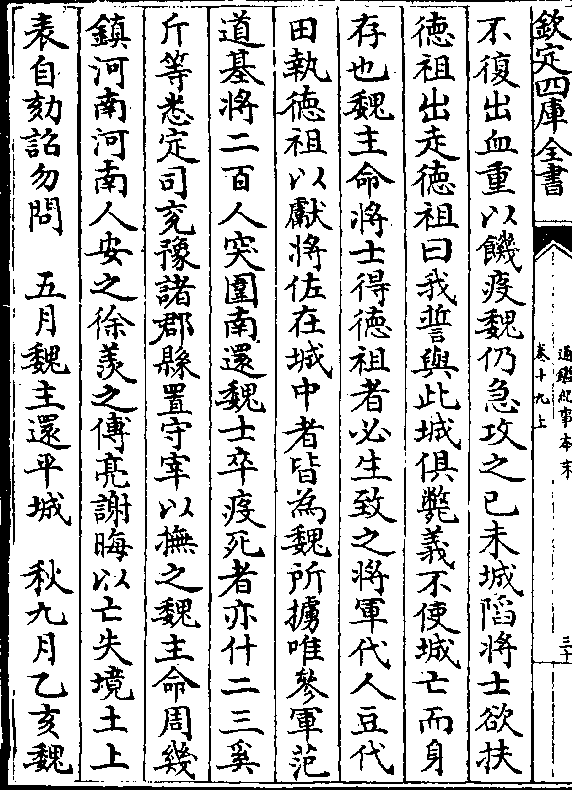 欽定四庫全書
通鑑紀事本末
卷十九上
三十
不復出血重以饑疫魏仍急攻之已未城陷將士欲扶
徳祖出走徳祖曰我誓與此城俱斃義不使城亡而身
存也魏主命將士得徳祖者必生致之將軍代人豆代
田執徳祖以獻將佐在城中者皆為魏所擄唯參軍范
道基將二百人突圍南還魏士卒疫死者亦什二三奚
斤等悉定司兖豫諸郡縣置守宰以撫之魏主命周幾
鎮河南河南人安之徐羨之傅亮謝晦以亡失境土上
表自劾詔勿問　五月魏主還平城　秋九月乙亥魏